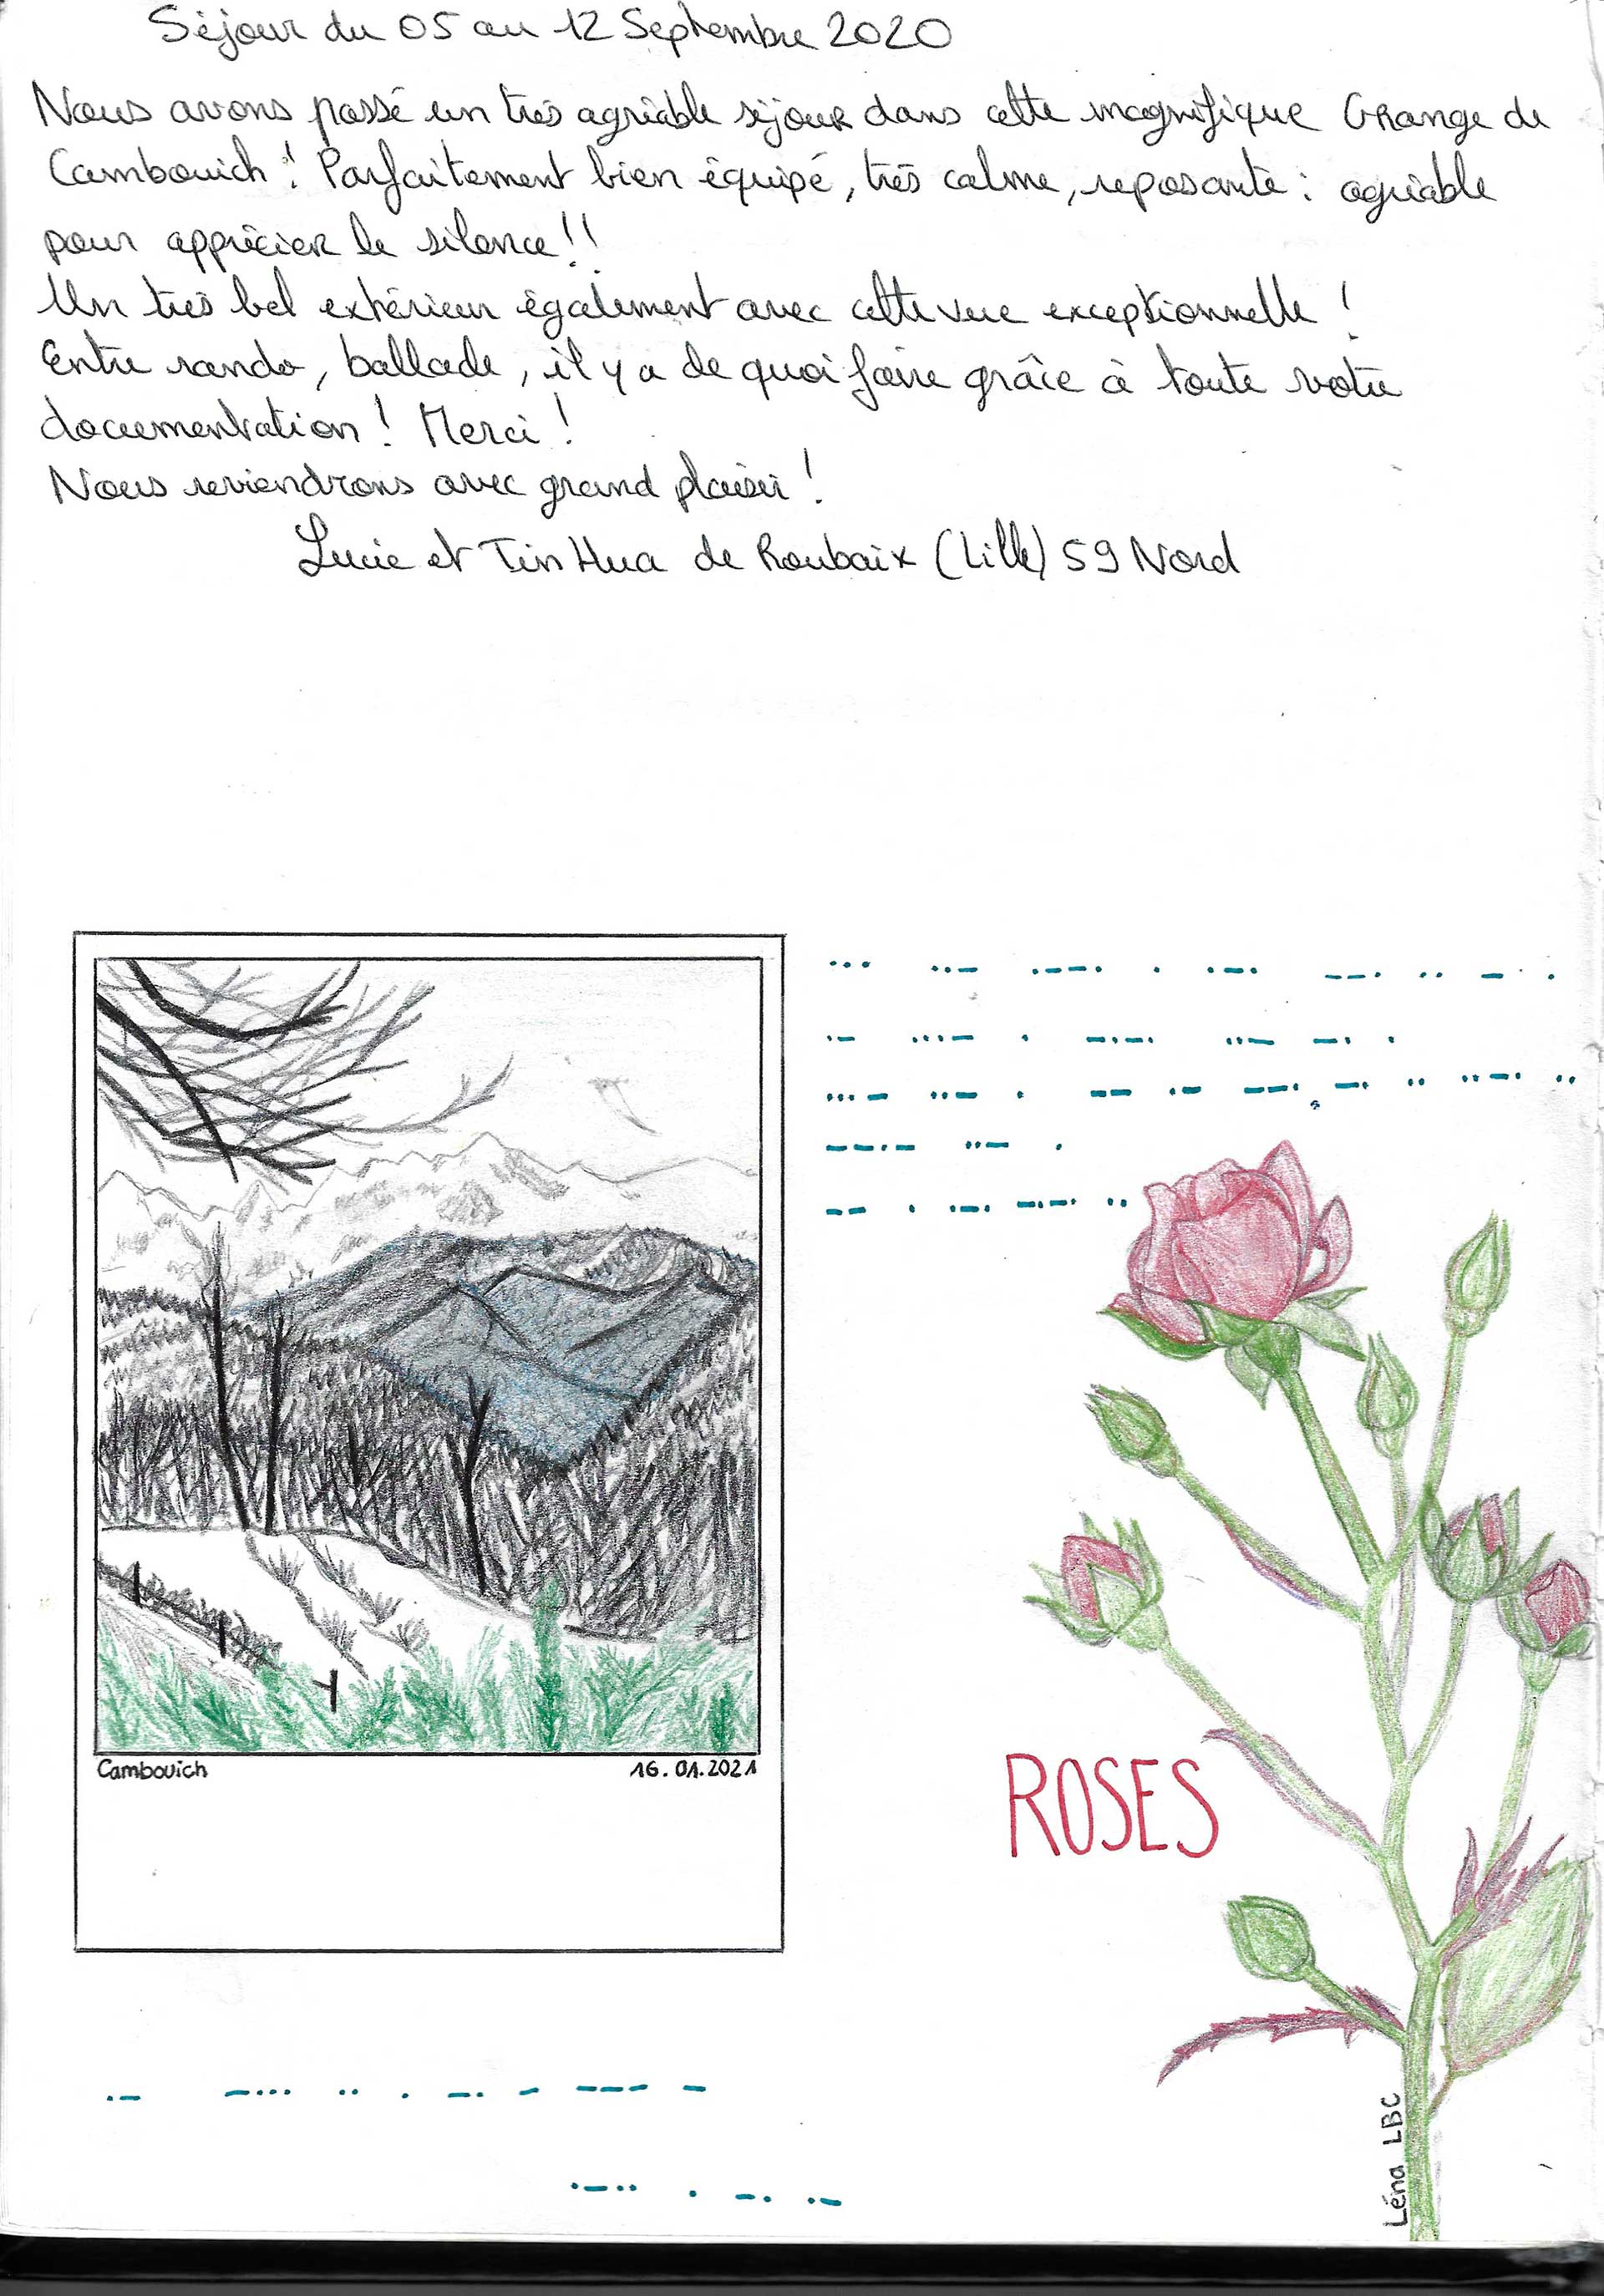 Séjour du 05 au 12 Septembre 2020
Nous avons passé un très agréable séjour dans cette magnifique Grange de
Cambouich ! Parfaitement bien équipé, très calme, reposante : agréable
pour apprécier le silence !!
Un très bel extérieur également avec cette vue exceptionnelle !
Entre rando, ballade, il y a de quoi faire grâce à toute votre
documentation ! Merci !
Nous reviendrons avec grand plaisir !
Lucie et Tin Hua de Roubaix (Lille) 59 Nord
... ..- .--. . .-. --. .. - .
.- ...- . -.-. ..- -. .
...- ..- . -- .- --. -. .. ..-. ..
--.- ..- .
-- . .-. -.-. ..
Cambouich 16.01.2021
ROSES
.- -... .. . -. - --- -
.-.. . -. .-
Léna LBC